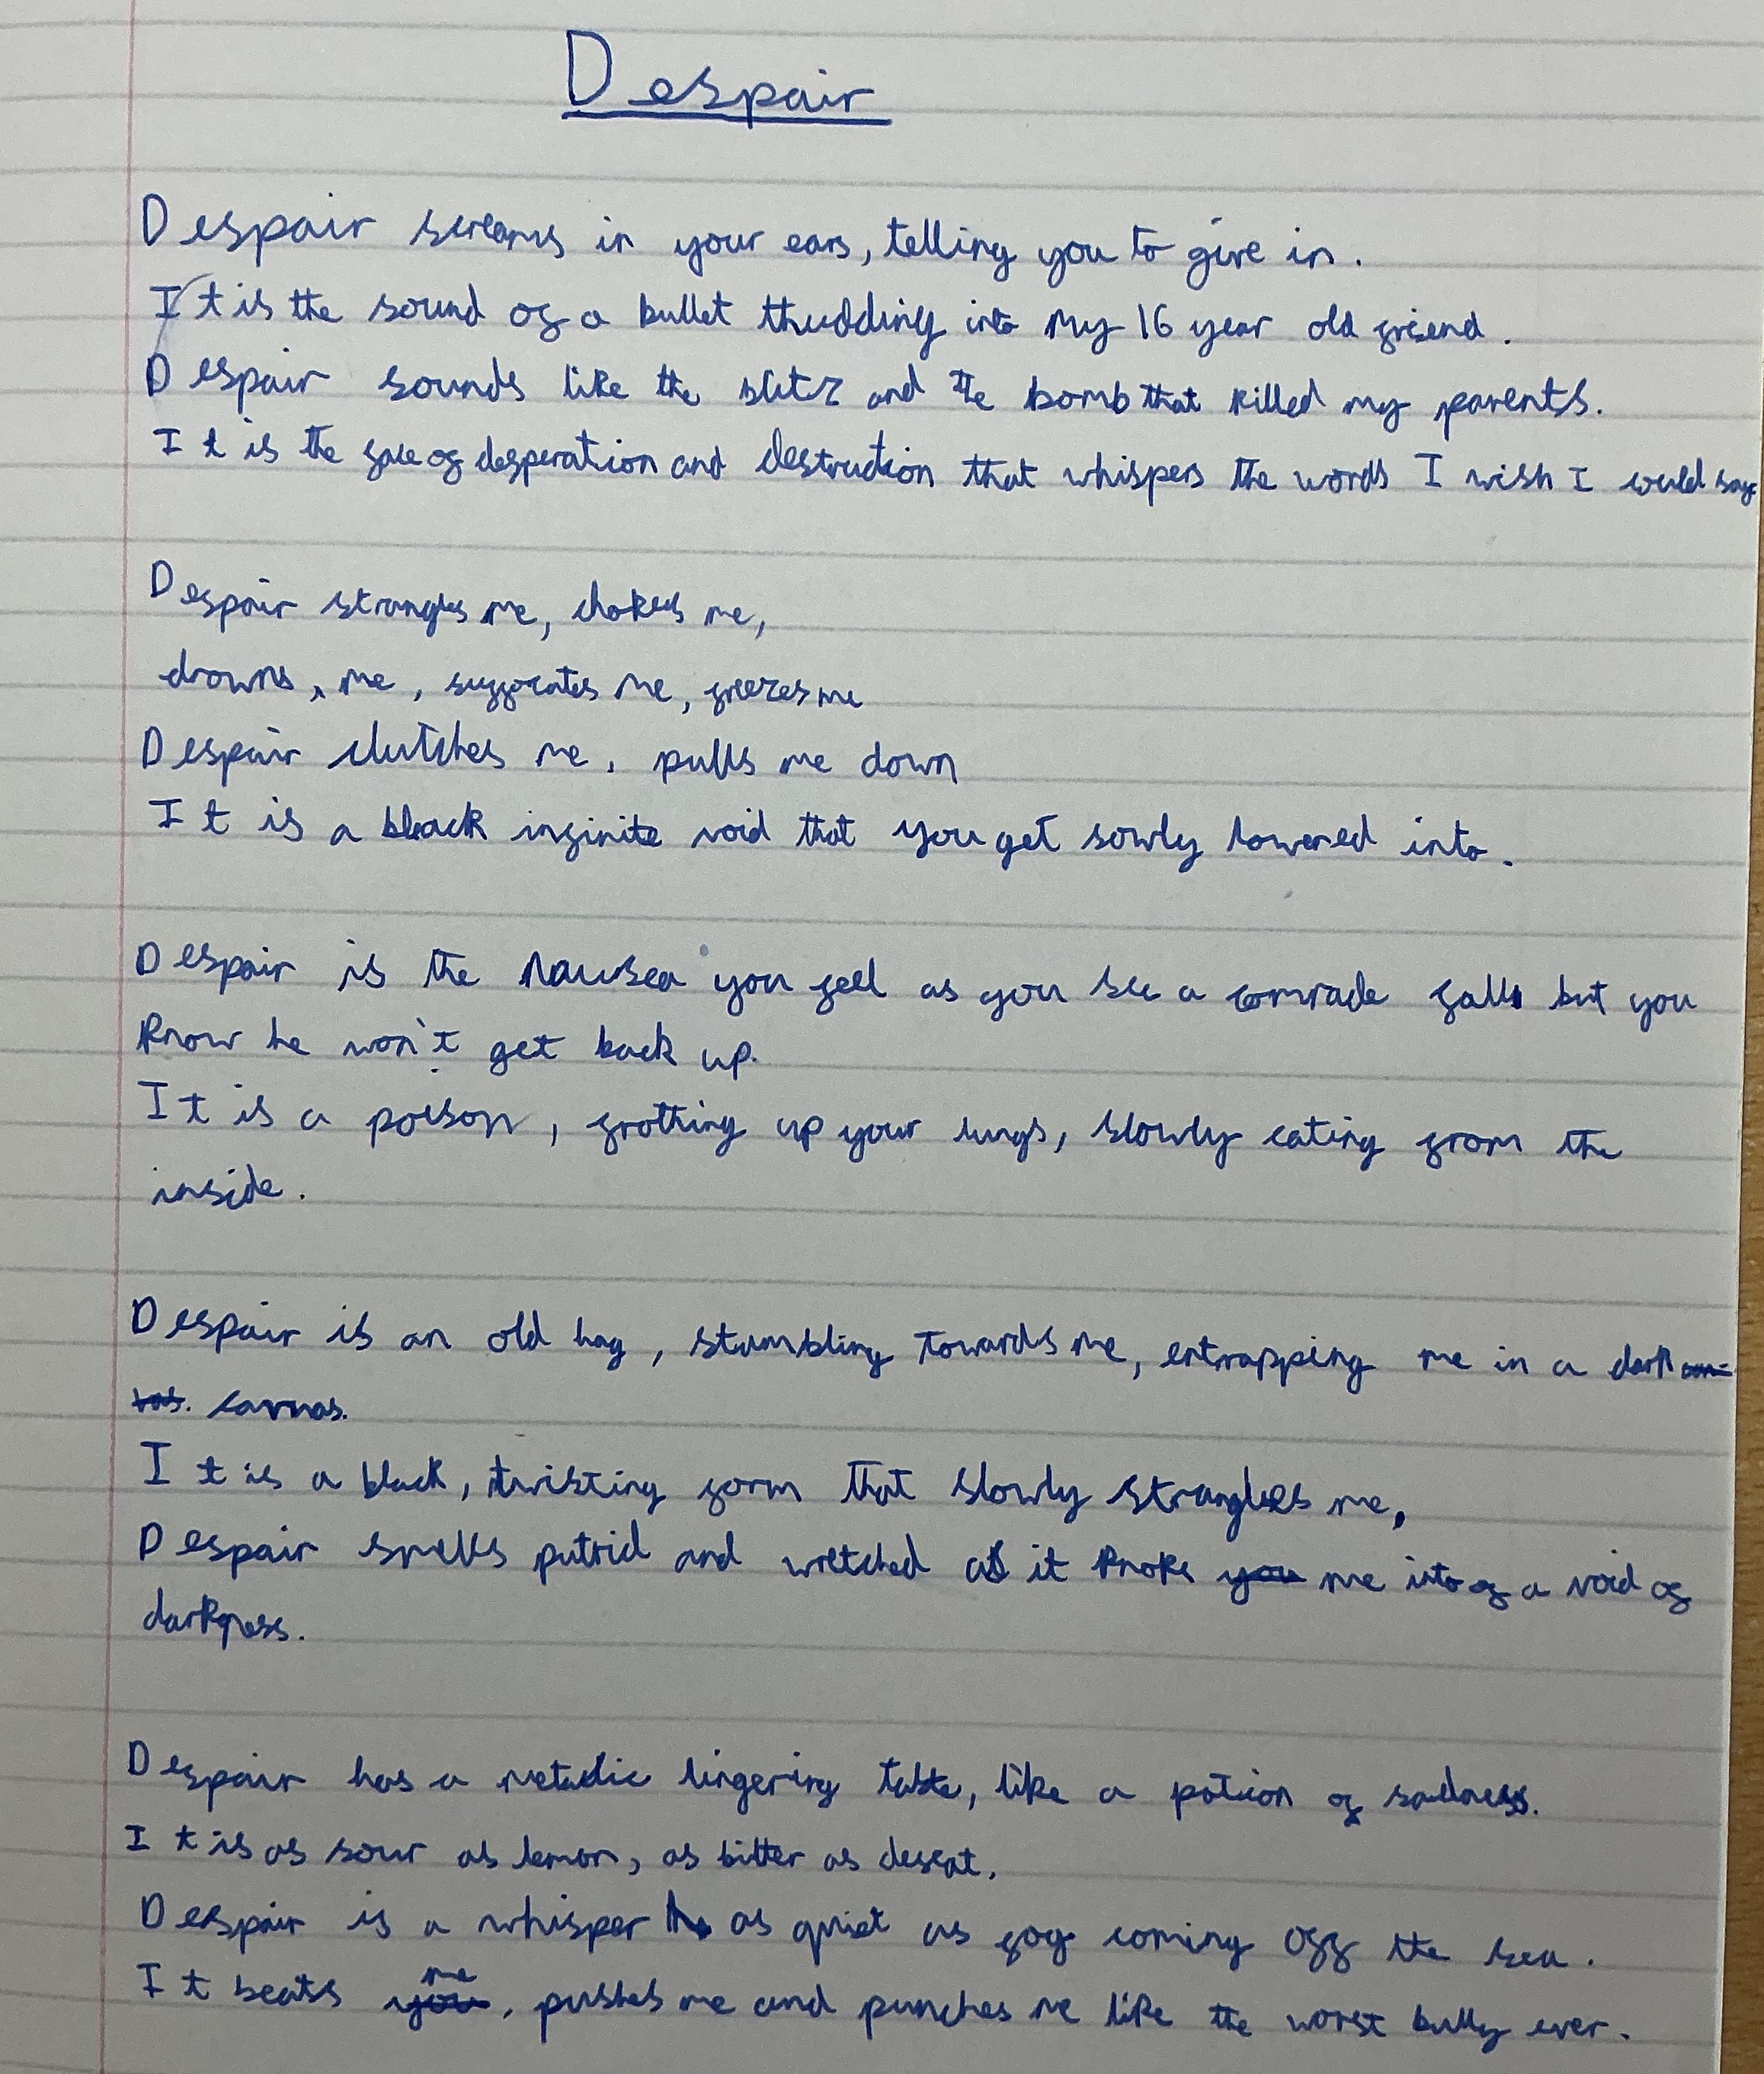 Despair
Despair screams in your ears, telling you to give in.
It is the sound of a bullet thudding into my 16 year old friend.
Despair sounds like the blitz and the bomb that killed my parents.
It is the face of desperation and destruction that whispers the words I wish I could say
Despair strangles me, chokes me,
drowns, me, suffocates me, freezes me
Despair clutches me, pulls me down
It is a black infinite void that you get sowly lowered into.
Despair is the nausea you feel as you see a comrade fall but you
know he won't get back up.
It is a poison, frothing up your lungs, slowly eating from the
inside.
Despair is an old hag, stumbling towards me, entrapping me in a dark
canvas.
It is a black, twisting form that slowly strangles me,
Despair smells putrid and wretched as it knoks me into of a void of
darkness.
Despair has a metalic lingering taste, like a potion of sadness.
It is as sour as lemon, as bitter as defeat.
Despair is a whisper as quiet as fog coming off the sea.
It beats me, pushes me and punches me like the worst bully ever.